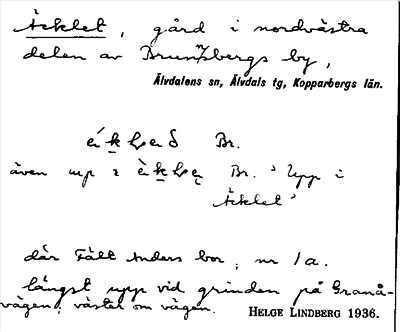 Äcklet, gård i nordvästra
delen av Brunnsbergs by,
Älvdalens sn, Älvdals tg, Kopparbergs län.
Br.
även upp Br. 'Upp i
Äcklet'
där Fält Anders bor, nr 1a.
längst upp vid grinden på Granå-
vägen, väster om vägen. HELGE LINDBERG 1936.